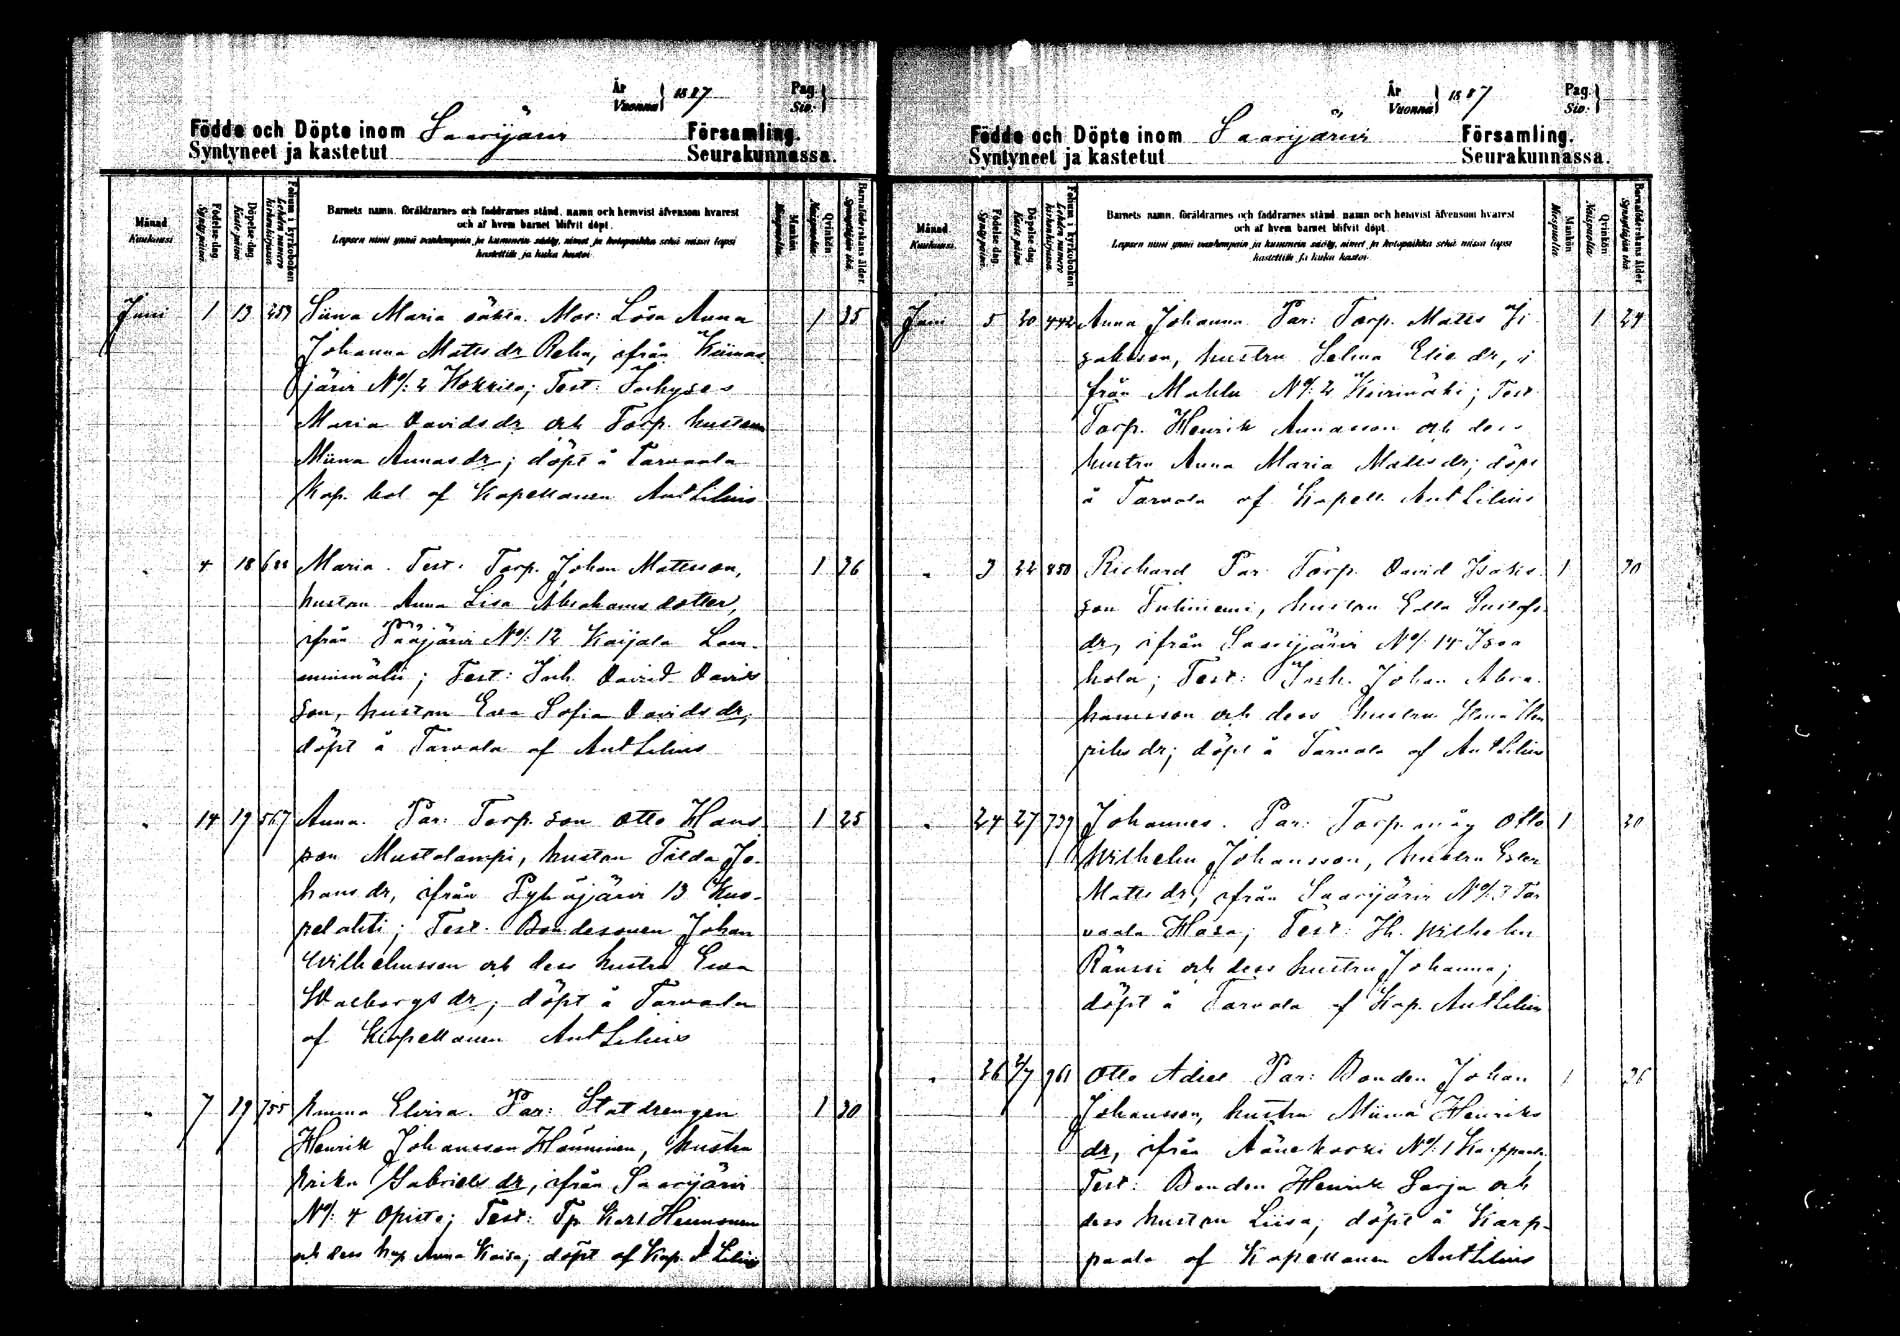 År Vuonna } 1887 Pag. Siv. }
Födde och Döpte inom Saarijärvi Församling.
Syntyneet ja kastetut Seurakunnassa.
Månad Kuukausi
Födelse-dag. Syntymä-päivä.
Döpelse-dag. Kaste-päivä.
Folium i kyrkoboken Lehden numero kirkonkirjassa.
Barnets namn, föräldrarnes och faddrarnes stånd, namn och hemvist äfvensom hvarest
och af hvem barnet blifvit döpt.
Lapsen nimi ynnä vanhempain ja kummein sääty, nimet ja kotopaikka sekä missä lapsi
kastettiin ja kuka kastoi.
Mankön Miespuolia.
Qvinkön Naispuolia.
Barnaföderskans ålder. Synnyttäjän ikä.
Juni 1 13 253 Siina Maria oäkta. Mor: Lösa Anna 1 25
Johanna Matts dr Rehn, ifrån Kiimas
järvi No/: 2 Kokkila; Test: Inhyses
Maria Davids dr och Torp. hustrun
Miina Annas dr; döpt å Tarvaala
Kap. bol af Kapellanen Ant Lilius
" 4 18 Maria. Test: Torp. Johan Mattsson, 1 26
hustru Anna Lisa Abrahams dotter,
ifrån Pääjärvi No/: 12 Kaijala Lam-
minmäki; Test: Inh. David Davids
son, hustru Eva Sofia Davids dr;
döpt å Tarvala af Ant Lilius
" 14 19 567 Anna. Par: Torp. son Otto Hans 1 25
son Mustalampi, hustru Tilda Jo-
hans dr, ifrån Pyhäjärvi 13 Kuo-
pelahti; Test: Bondesonen Johan
Wilhelmsson och dess hustru Eva
Walborgs dr; döpt å Tarvaala
af Kapellanen Ant Lilius
" 7 19 755 Emma Elvira. Par: Statdrengen 1 30
Henrik Johansson Hänninen, hustru
Erika Gabriels dr, ifrån Saarijärvi
No/: 4 Opisto; Test: Tp Karl Heimonen
och dess hu Anna Kaisa; döpt af Kap. A Lilius
År Vuonna } 1887 Pag. Siv. }
Födde och Döpte inom Saarijärvi Församling.
Syntyneet ja kastetut Seurakunnassa.
Månad Kuukausi.
Födelse-dag. Syntymä-päivä.
Döpelse-dag. Kaste-päivä.
Folium i kyrkoboken Lehden numero kirkonkirjassa.
Barnets namn, föräldrarnes och faddrarnes stånd, namn och hemvist äfvensom hvarest
och af hvem barnet blifvit döpt.
Lapsen nimi ynnä vanhempain ja kummein sääty, nimet ja kotopaikka sekä missä lapsi
kastettiin ja kuka kastoi.
Mankön Miespuolia.
Qvinkön Naispuolia.
Barnaföderskans ålder. Synnyttäjän ikä.
Juni 5 20 442 Anna Johanna. Par: Torp. Matts 1 24
hustru Selma Elie dr, i
från Mahlu No/: 2 Test:
Torp. Henrik Annasson och dess
hustru Anna Maria Matts dr; döpt
å Tarvala af Kapell. Ant Lilius
" 3 22 850 Richard Par: Torp. David Isaks 1 30
son hustru Eva Gustafs
dr, ifrån Saarijärvi No/: 14 Isoa
hola; Test: Inh. Johan Abra
hamsson och dess hustru Stina
dr; döpt å Tarvala af Ant Lilius
" 24 27 739 Johannes. Par: Torp. måg Otto 1 20
Wilhelm Johansson, hustru Ester
Matts dr, ifrån Saarijärvi No/: 3 Tar
vaala Hasa; Test: Ih. Wilhelm
Ränssi och dess hustru Johanna;
döpt å Tarvala af Kap. Ant Lilius
" 26 2/7 961 Otto Adiel Par: Bonden Johan 1 26
Johansson, hustru Miina Henriks
dr, ifrån Äänekoski No/: 1 Karppaala
Test: Bonden Henrik Sarja och
dess hustru Liisa; döpt å Karp-
paala af Kapellanen Ant Lilius